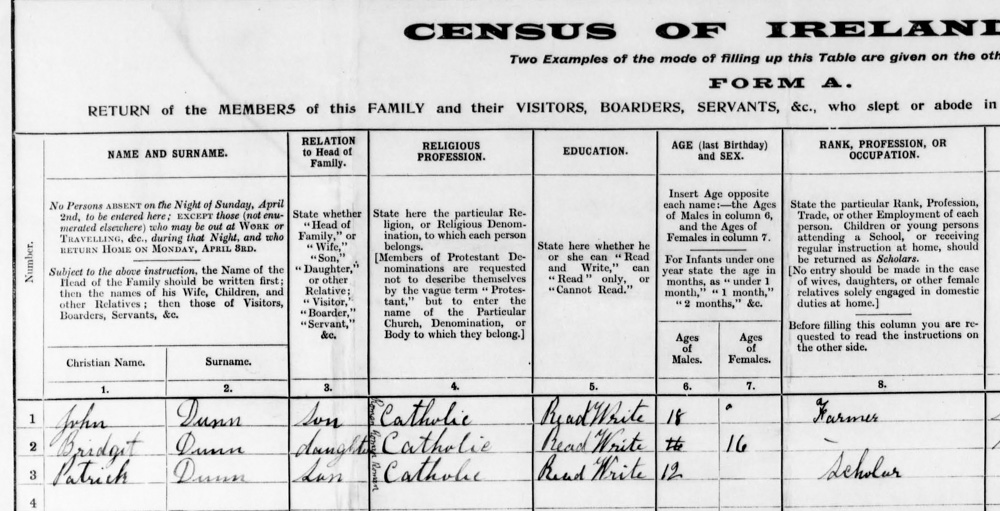 CENSUS OF IRELAND
Two Examples of the mode of filling up this Table are given on the
FORM A.
RETURN of the MEMBERS of this FAMILY and their VISITORS, BOARDERS, SERVANTS, &c., who slept or abode in
Number.
NAME AND SURNAME.
No Persons ABSENT on the Night of Sunday, April
2nd, to be entered here; EXCEPT those (not enu-
merated elsewhere) who may be out at WORK or
TRAVELLING, &c., during that Night, and who
RETURN HOME ON MONDAY, APRIL 3RD.
Subject to the above instruction, the Name of the
Head of the Family should be written first;
then the names of his Wife, Children, and
other Relatives; then those of Visitors,
Boarders, Servants, &c.
Christian Name.
Surname.
RELATION
to Head of
Family.
State whether
"Head of
Family," or
"Wife,"
"Son,"
"Daughter,"
or other
Relative;
"Visitor,"
"Boarder,"
"Servant,"
&c.
RELIGIOUS
PROFESSION.
State here the particular Re-
ligion, or Religious Denom-
ination, to which each person
belongs.
[Members of Protestant De-
nominations are requested
not to describe themselves
by the vague term "Protes-
tant," but to enter the
name of the Particular
Church, Denomination, or
Body to which they belong.]
EDUCATION.
State here whether he
or she can "Read
and Write," can
"Read" only, or
"Cannot Read."
AGE (last Birthday)
and SEX.
Insert Age opposite
each name:—the Ages
of Males in column 6,
and the Ages of
Females in column 7.
For Infants under one
year state the age in
months, as "under 1
month," "1 month,"
"2 months," &c.
Ages
of
Males.
Ages
of
Females.
RANK, PROFESSION, OR
OCCUPATION.
State the particular Rank, Profession,
Trade, or other Employment of each
person. Children or young persons
attending a School, or receiving
regular instruction at home, should
be returned as Scholars.
[No entry should be made in the case
of wives, daughters, or other female
relatives solely engaged in domestic
duties at home.]
Before filling this column you are re-
quested to read the instructions on
the other side.
1. 2. 3. 4. 5. 6. 7. 8.
1 John Dunn son Roman Catholic Read Write 18 Farmer
2 Bridget Dunn daughter Roman Catholic Read Write 16 -
3 Patrick Dunn Son Roman Catholic Read Write 12 Scholar
4